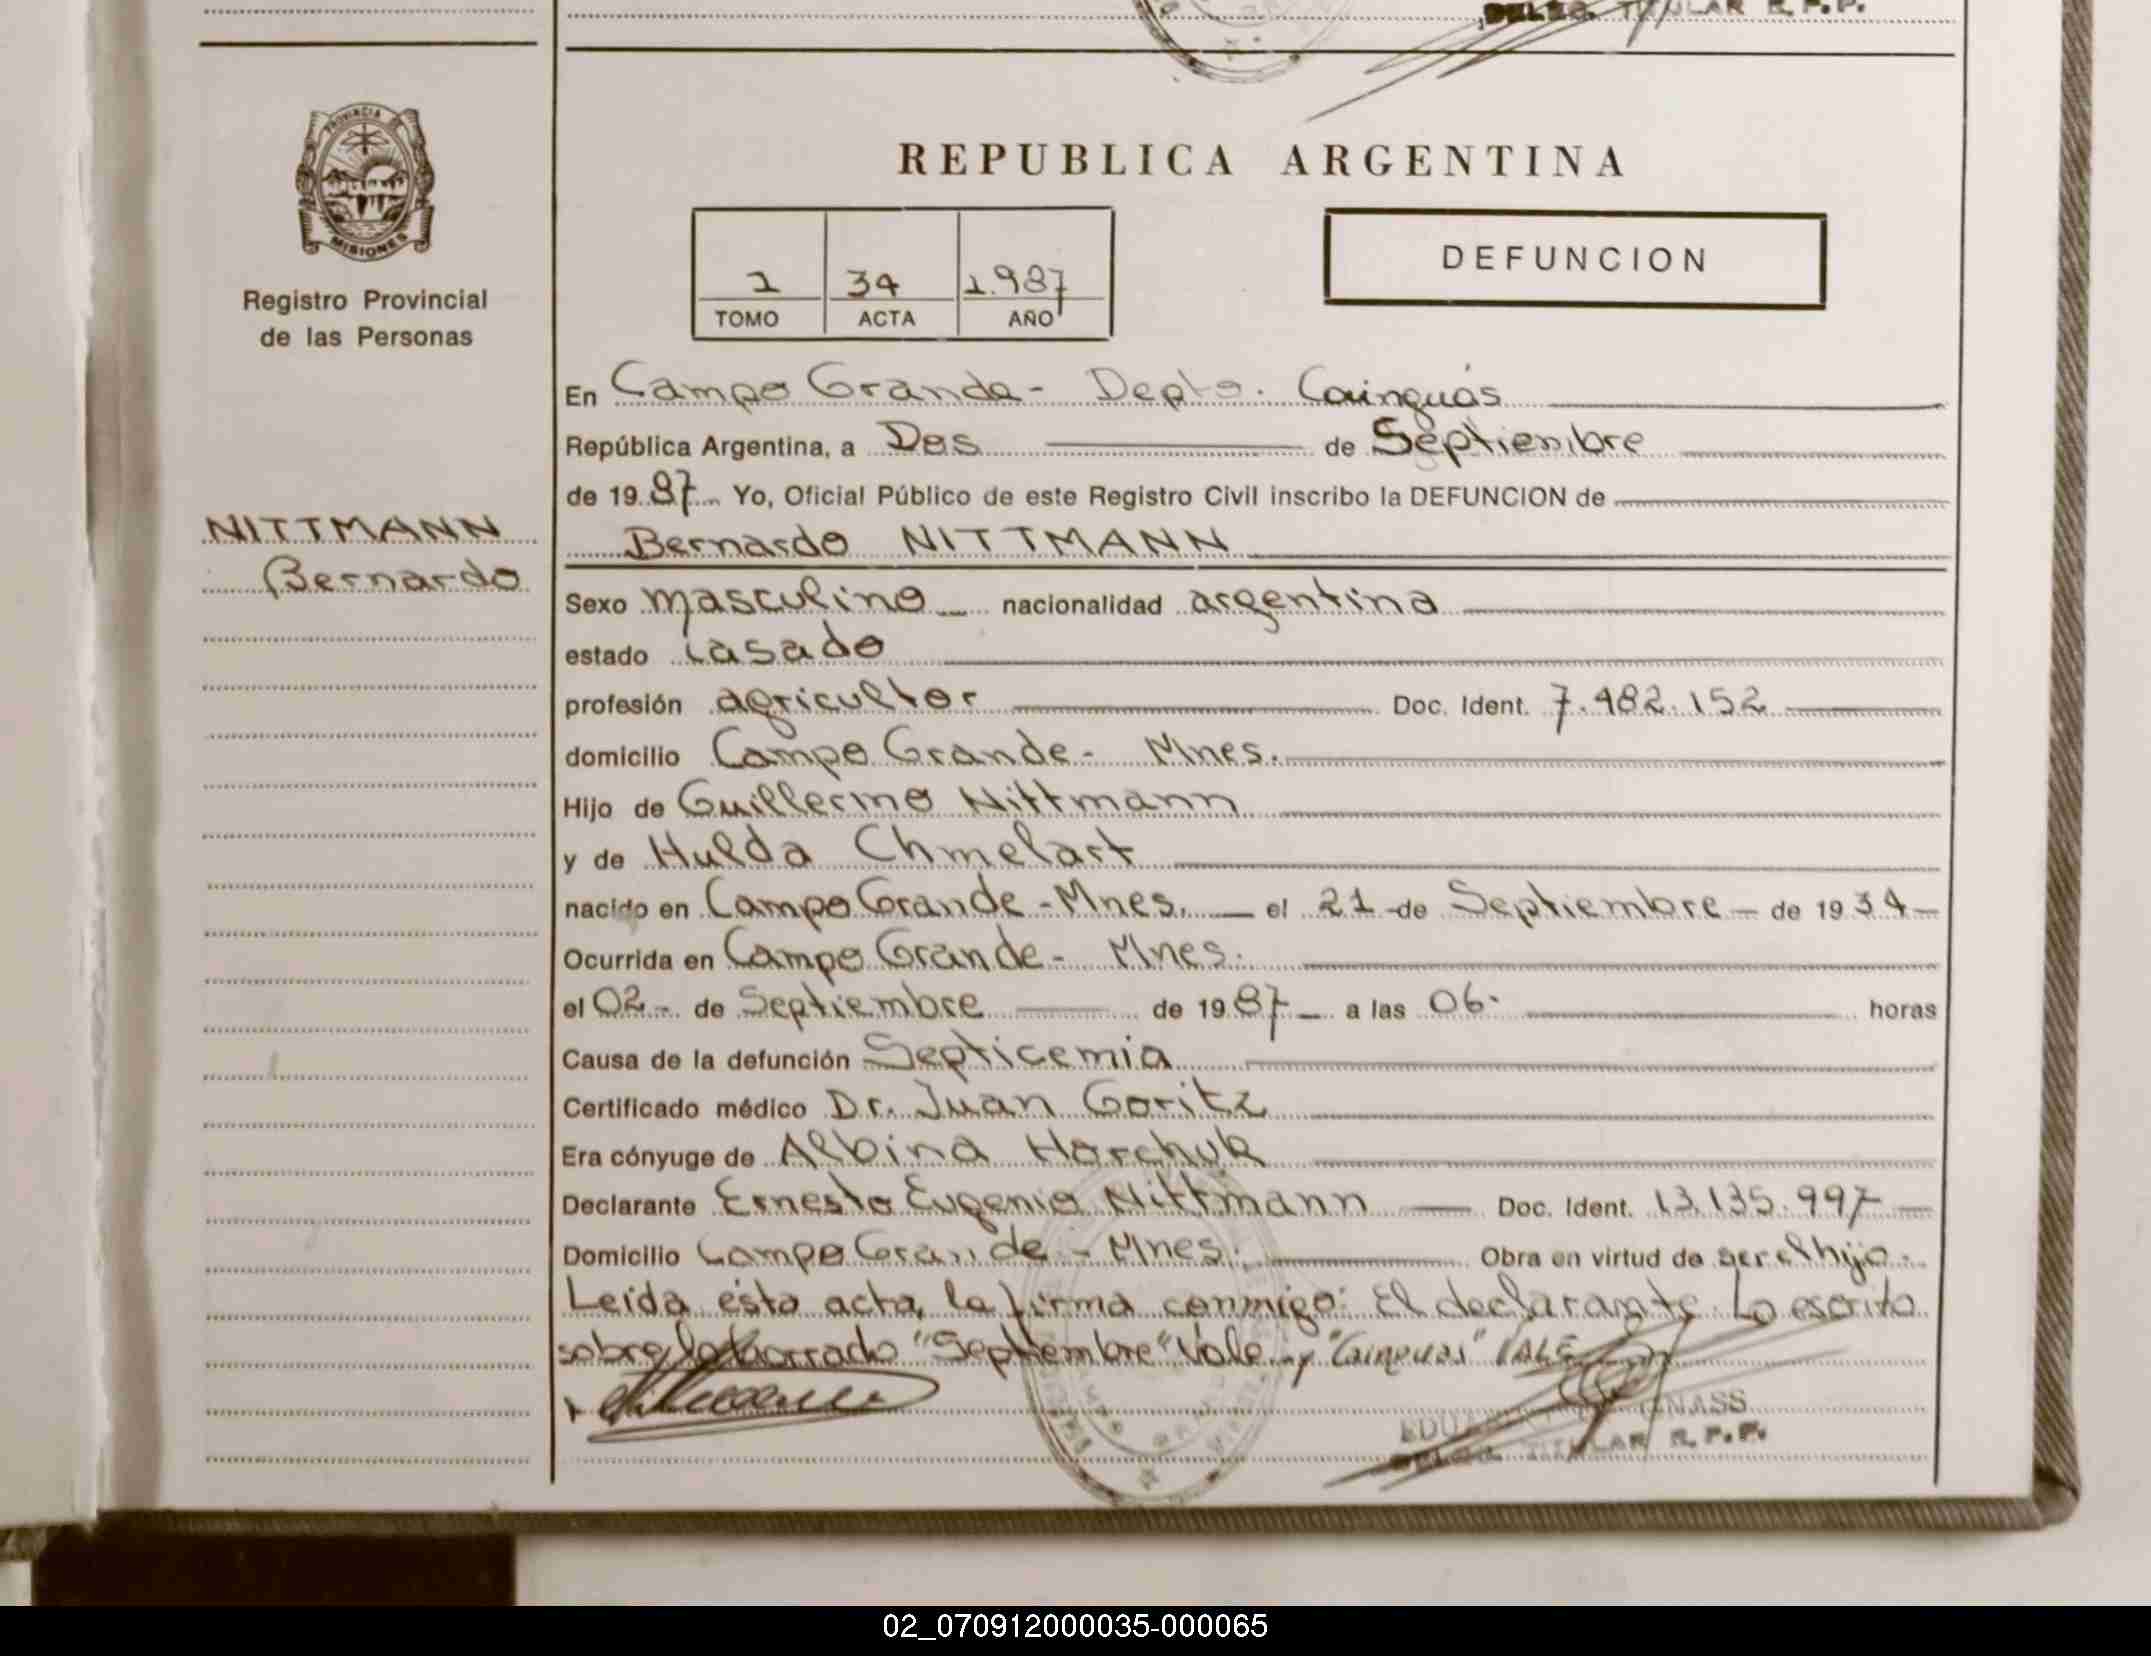 DELEG. TITULAR R.P.P.
PROVINCIA
MISIONES
Registro Provincial
de las Personas
REPUBLICA ARGENTINA
1 34 1.987
TOMO ACTA AÑO
DEFUNCION
En Campo Grande - Depto. Cainguás
República Argentina, a Dos de Septiembre
de 19 87 Yo, Oficial Público de este Registro Civil inscribo la DEFUNCION de
NITTMANN
Bernardo
Bernardo NITTMANN
Sexo masculino nacionalidad argentina
estado casado
profesión agricultor Doc. Ident. 7.482.152
domicilio Campo Grande - Mnes.
Hijo de Guillermo Nittmann
y de Hulda Chmelart
nacido en Campo Grande - Mnes. el 21 de Septiembre de 19 34
Ocurrida en Campo Grande - Mnes.
el 02 de Septiembre de 19 87 a las 06 horas
Causa de la defunción Septicemia
Certificado médico Dr. Juan Goritz
Era cónyuge de Albina Horchuk
Declarante Ernesto Eugenio Nittmann Doc. Ident. 13.135.997
Domicilio Campo Grande - Mnes. Obra en virtud de ser el hijo.
Leída ésta acta, la firma conmigo: El declarante. Lo escrito
sobre lo borrado "Septiembre" Vale y "Cainguas" VALE
DELEG. TITULAR R.P.P.
02_070912000035-000065